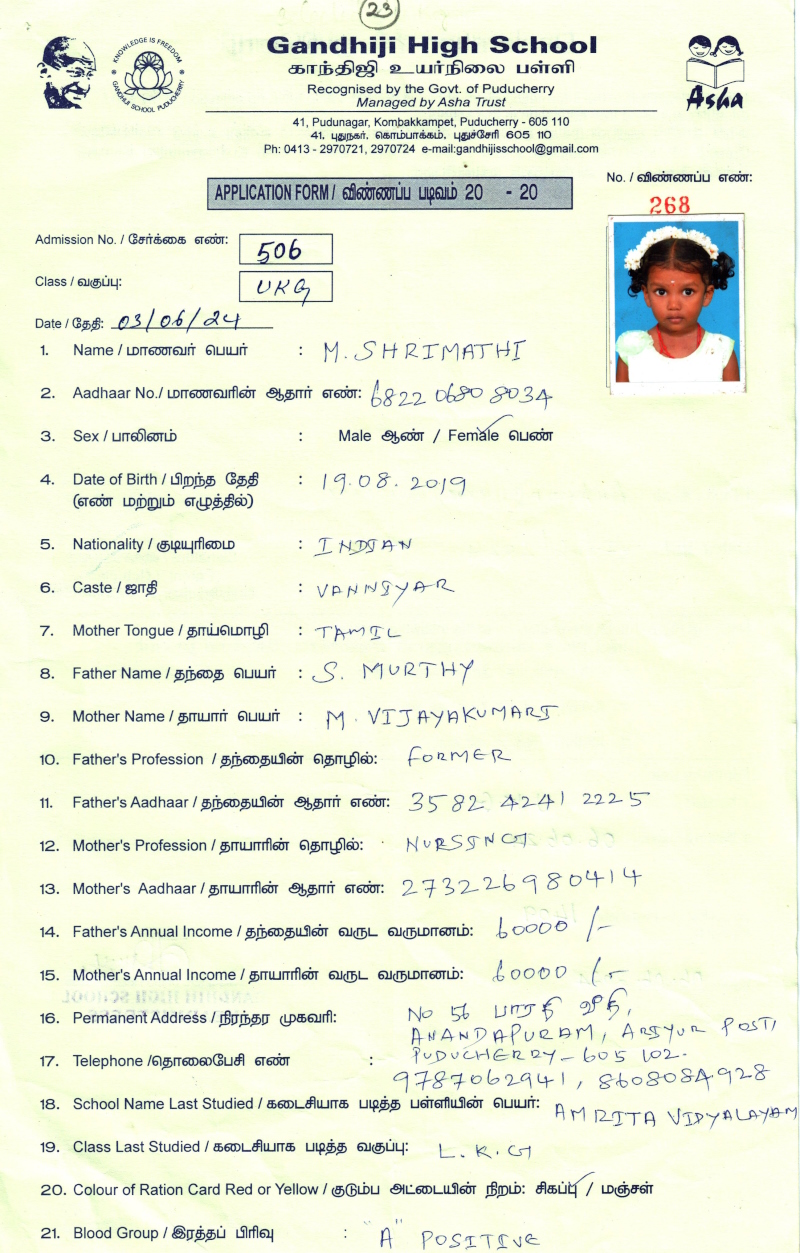 23
Gandhiji High School
காந்திஜி உயர்நிலை பள்ளி
Recognised by the Govt. of Puducherry
Managed by Asha Trust
KNOWLEDGE IS FREEDOM
GANDHIJI SCHOOL PUDUCHERRY
Asha
41, Pudunagar, Kombakkampet, Puducherry - 605 110
41. புதுநகர். கொம்பாக்கம். புதுச்சேரி 605 110
Ph: 0413 - 2970721, 2970724 e-mail:gandhijisschool@gmail.com
APPLICATION FORM / விண்ணப்ப படிவம் 20 - 20
No. / விண்ணப்ப எண்:
268
Admission No. / சேர்க்கை எண்: 506
Class / வகுப்பு: UKG
Date / தேதி: 03/06/24
1. Name / மாணவர் பெயர் : M. SHRIMATHI
2. Aadhaar No./ மாணவரின் ஆதார் எண்: 6822 0680 8034
3. Sex / பாலினம் : Male ஆண் / Female பெண்
4. Date of Birth / பிறந்த தேதி : 19.08.2019
(எண் மற்றும் எழுத்தில்)
5. Nationality / குடியுரிமை : INDIAN
6. Caste / ஜாதி : VANNIYAR
7. Mother Tongue / தாய்மொழி : TAMIL
8. Father Name / தந்தை பெயர் : S. MURTHY
9. Mother Name / தாயார் பெயர் : M. VIJAYAKUMARI
10. Father's Profession / தந்தையின் தொழில்: FORMER
11. Father's Aadhaar / தந்தையின் ஆதார் எண்: 3582 4241 2225
12. Mother's Profession / தாயாரின் தொழில்: NURSING
13. Mother's Aadhaar / தாயாரின் ஆதார் எண்: 273226980414
14. Father's Annual Income / தந்தையின் வருட வருமானம்: 60000 /-
15. Mother's Annual Income / தாயாரின் வருட வருமானம்: 60000 /-
16. Permanent Address / நிரந்தர முகவரி: No 56 பாரதி வீதி,
ANANDAPURAM, ARIYUR POST,
PUDUCHERRY - 605 102.
17. Telephone /தொலைபேசி எண் : 9787062941, 8608084928
18. School Name Last Studied / கடைசியாக படித்த பள்ளியின் பெயர்: AMRITA VIDYALAYAM
19. Class Last Studied / கடைசியாக படித்த வகுப்பு: L.K.G
20. Colour of Ration Card Red or Yellow / குடும்ப அட்டையின் நிறம்: சிகப்பு / மஞ்சள்
21. Blood Group / இரத்தப் பிரிவு : "A" POSITIVE